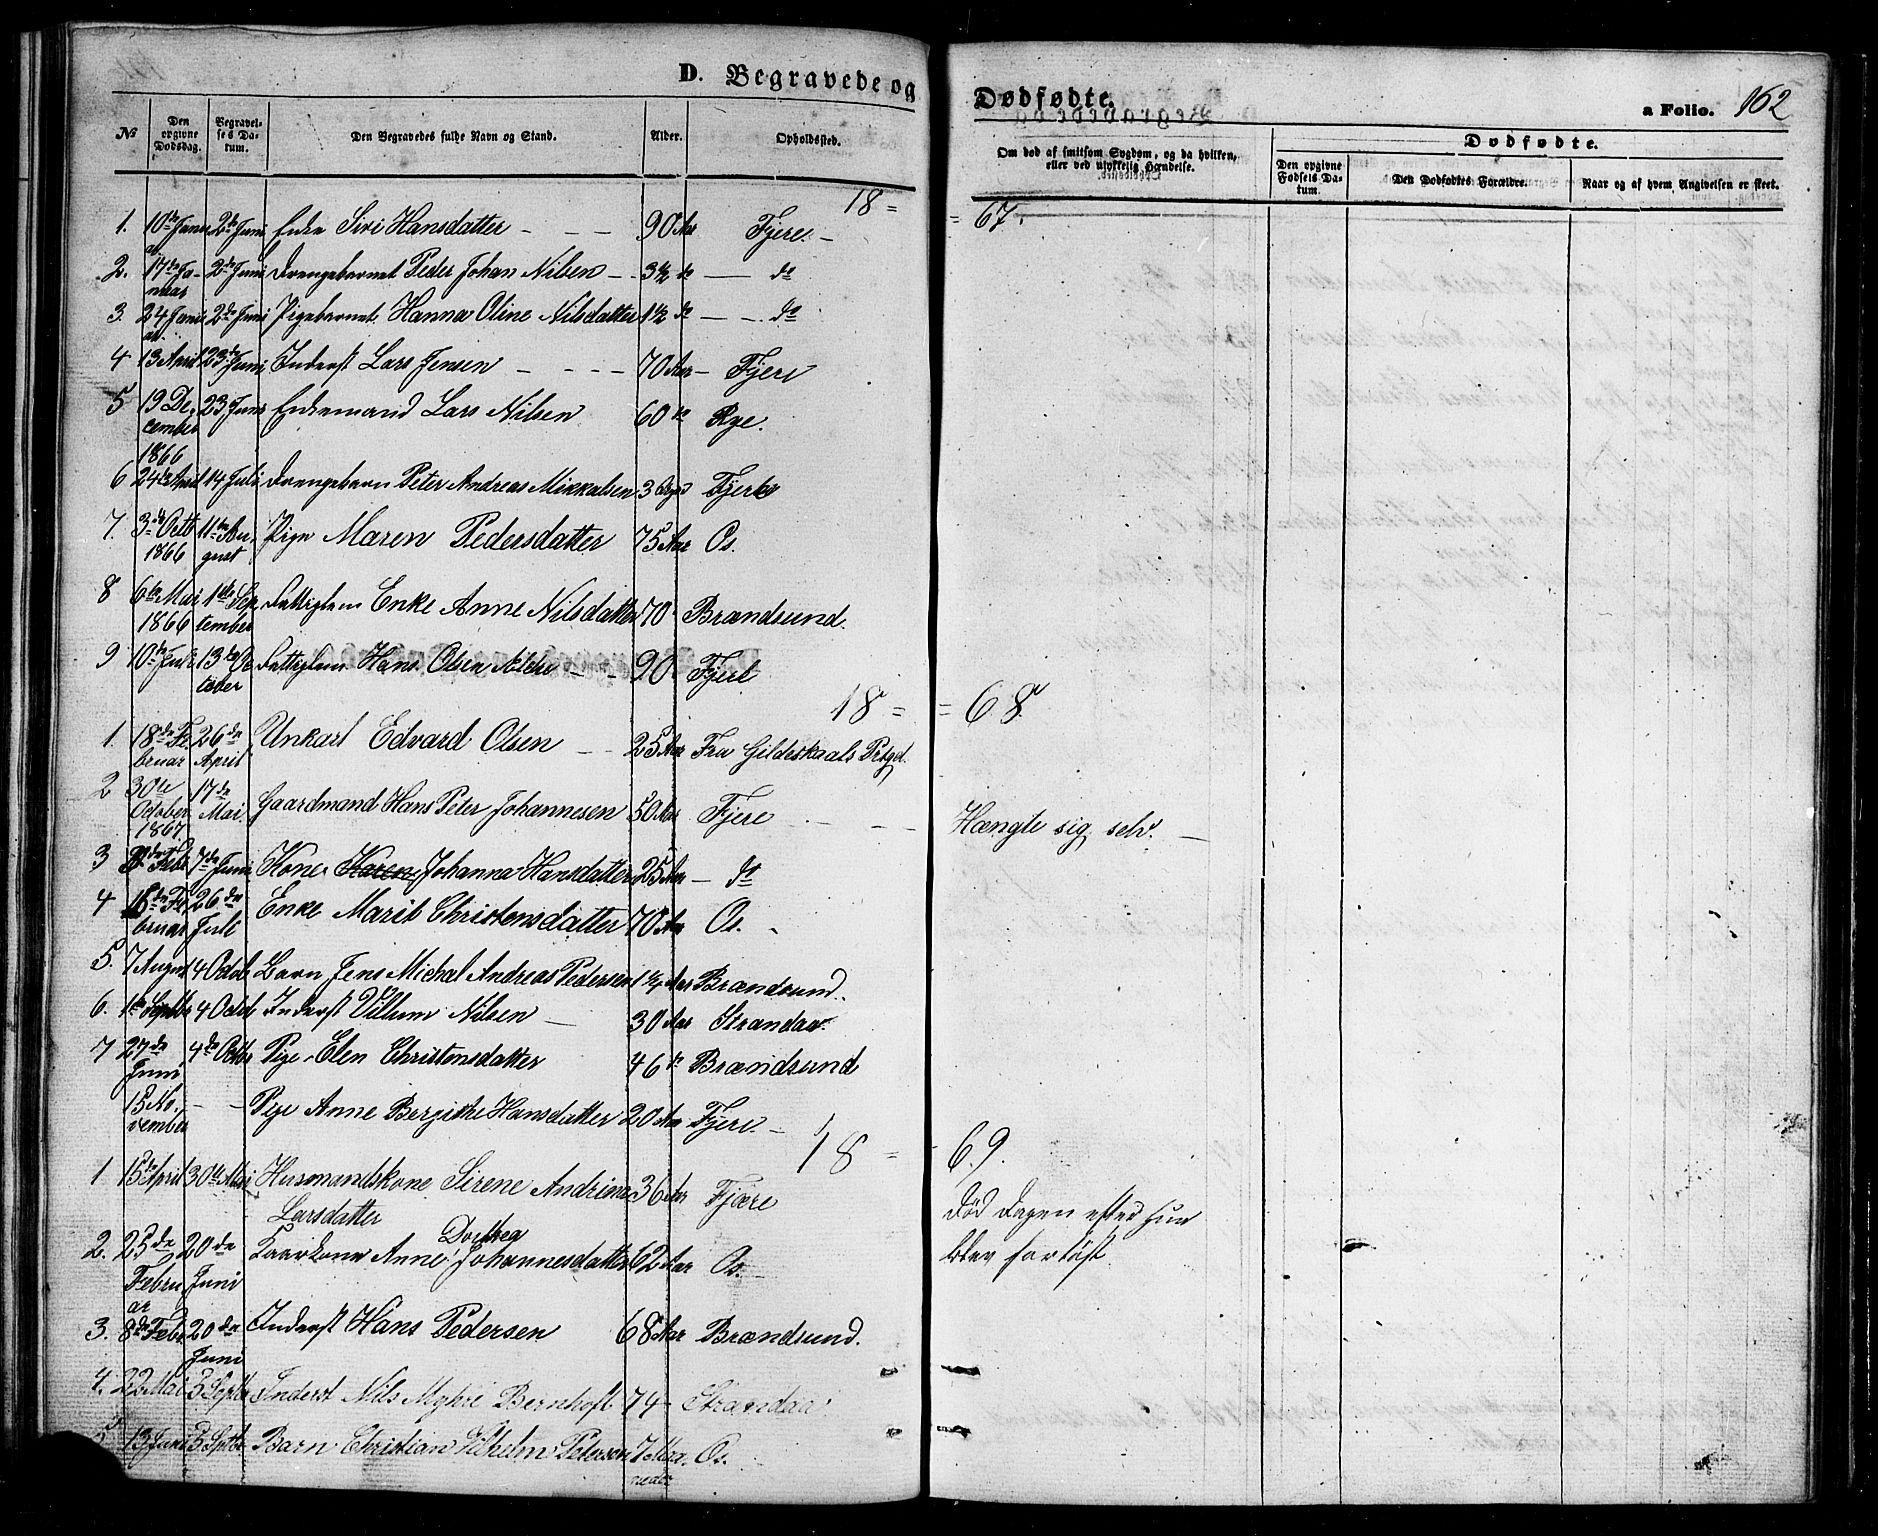 D. Begravede og Dødfødte.
a Folio. 162
№
Den opgivne Dødsdag.
Begravelses Datum.
Den Begravedes fulde Navn og Stand.
Alder.
Opholdssted.
Om død af smitsom Sygdom, og da hvilken, eller ved ulykkelig Hændelse.
Dødfødte.
Den opgivne Fødsels Datum.
Den Dødfødtes Forældre.
Naar og af hvem Angivelsen er skeet.
18 = = 67.
1. 10de Januar 2de Juni Enke Siri Hansdatter - - - 90 Aar Fjere -
2. 17de Januar 2de Juni Drengebarnet Peder Johan Nilsen - 3½ do - do
3. 24 Januar 2de Juni Pigebarnet Hanna Oline Nilsdatter 1½ do - - do
4 13 April 23de Juni Inderst Lars Jensen - - - - 70 Aar - Fjere
5 19 December 1866 23 Juni Enkemand Lars Nilsen 60 do Rye.
6 24de April 14 Juli Drengebarn Peter Andreas Mikkalsen 3 Fjere
7. 3die Octb 1866 11te August Pige Maren Pedersdatter 75 Aar Os.
8 6te Mai 1866 1ste September Fattiglem Enke Anne Nilsdatter 70 Brændsund.
9 10de Juli 13de October Fattiglem Hans Olsen - - 90 Fjere
18 = = 68
1. 18de Februar 26de April Unkarl Edvard Olsen - - 25 Aar Fra Gildeskaals Prstgd.
2 30te October 1867 17de Mai Gaardmand Hans Peter Johannesen 50 Aar Fjere - - - Hængte sig selv. -
3 Feb 7de Juni Kone Karen Johanna Hansdatter 25 Aar - do
4 18de Februar 26de Juli Enke Marit Christensdatter 70 Aar Os. -
5. 7 August 4 Octob Barn Jens Michal Andreas Pedersen 1 Aar Brændsund.
6. 1ste Septbr 4 Octob Inderst Villum Nilsen - 30 Aar Strandaa
7 27de Juni 4de Octbr Pige Elen Christensdatter 46 do Brændsund
15 November - - Pige Anne Bergitte Hansdatter 20 Aar Fjere. -
18 = - 69.
1 15de April 30te Mai Husmandskone Sirene Andrina Larsdatter 36 Aar Fjære Død Dagen efter hun blev forløst
2. 25de Februar 20de Juni Kaarkone Anne Dorthea Johannesdatter 62 Aar Os.
3. 8de Feb. 20de Juni Inderst Hans Pedersen 68 Aar Brændsund.
4. 22 Mai 3 Septbr Inderst Nils Myhre Bernhoft 74 - Strandaa
5 13 Juni 3 Septbr Barn Christian Vilhelm Petersen 7 Maaneder Os.